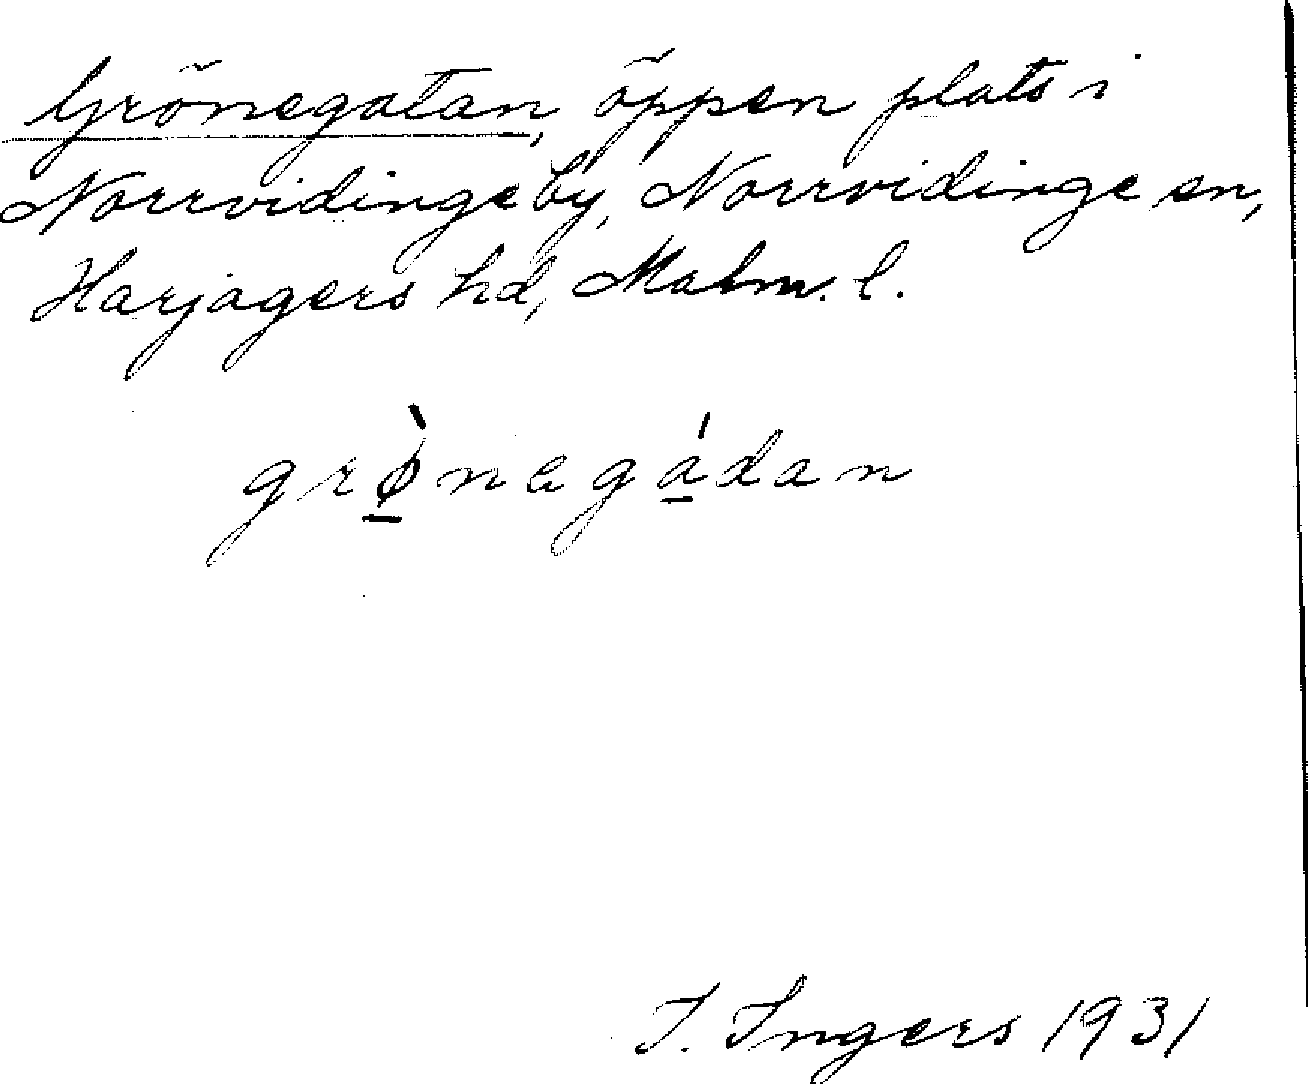 Grönegatan, öppen plats i
Norrvidinge by, Norrvidinge sn,
Harjagers hd, Malm. l.
grø̀negádan
I. Ingers 1931